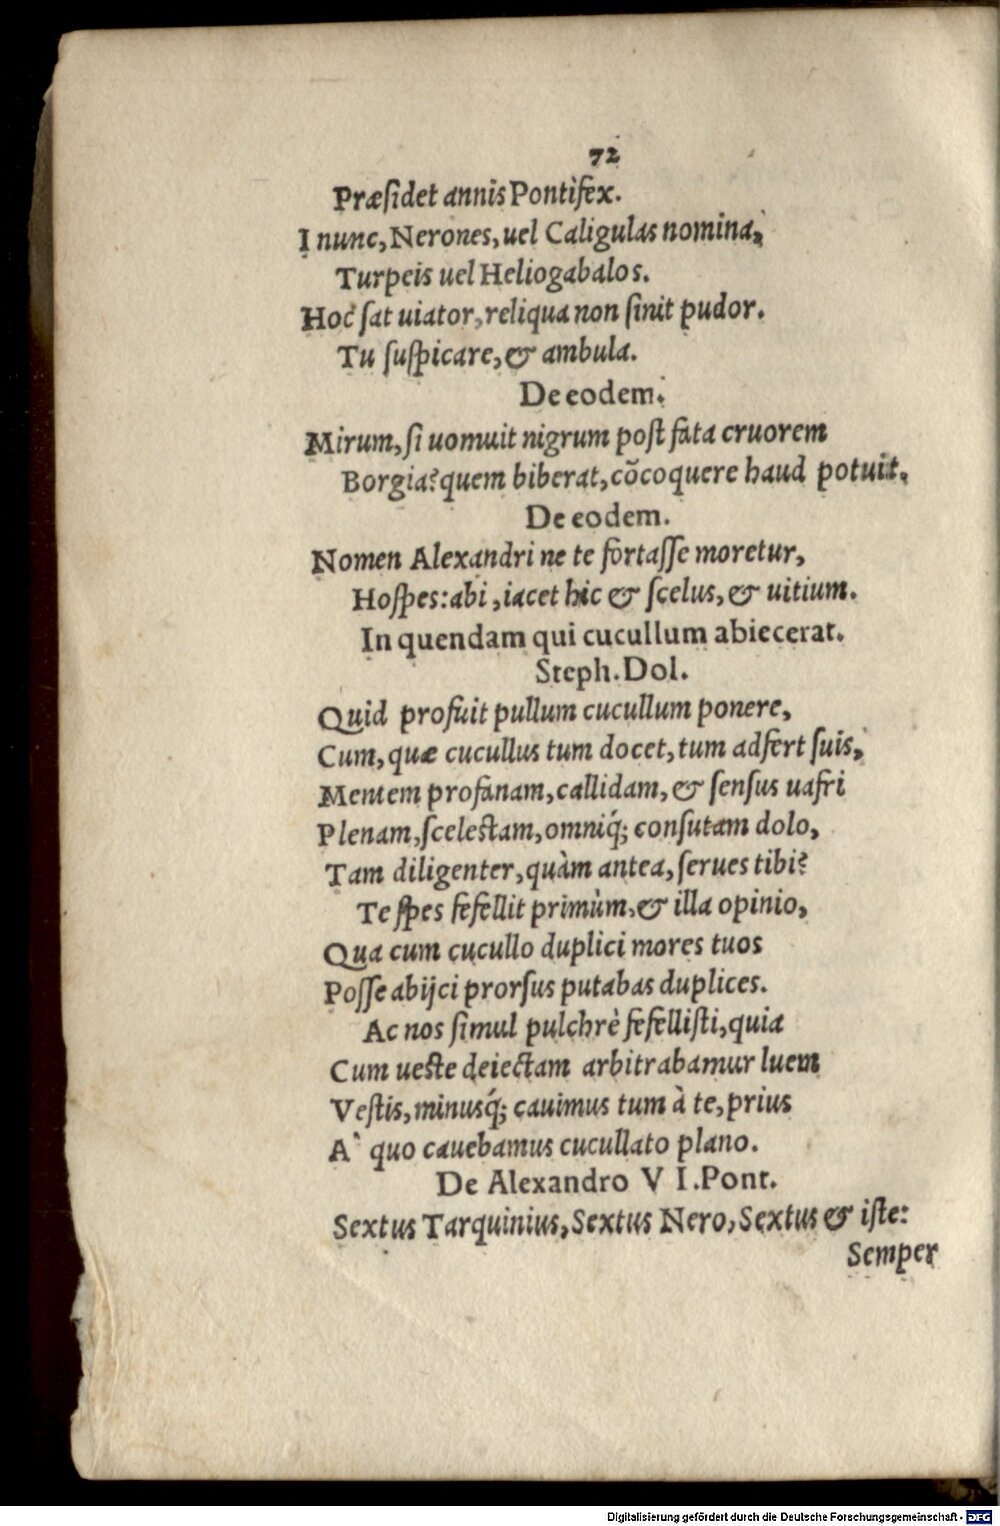 72
Præſidet annis Pontifex.
I nunc, Nerones, uel Caligulas nomina,
Turpeis uel Heliogabalos.
Hoc ſat uiator, reliqua non ſinit pudor.
Tu ſuſpicare, & ambula.
De eodem.
Mirum, ſi uomuit nigrum poſt fata cruorem
Borgia? quem biberat, cõcoquere haud potuit.
De eodem.
Nomen Alexandri ne te fortaſſe moretur,
Hoſpes: abi, iacet hic & ſcelus, & uitium.
In quendam qui cucullum abiecerat.
Steph. Dol.
Quid profuit pullum cucullum ponere,
Cum, quæ cucullus tum docet, tum adfert ſuis,
Mentem profanam, callidam, & ſenſus uafri
Plenam, ſceleſtam, omniq́; conſutam dolo,
Tam diligenter, quàm antea, ſerues tibi?
Te ſpes fefellit primùm, & illa opinio,
Qua cum cucullo duplici mores tuos
Poſſe abijci prorſus putabas duplices.
Ac nos ſimul pulchrè fefelliſti, quia
Cum ueſte deiectam arbitrabamur luem
Veſtis, minusq́; cauimus tum à te, prius
A` quo cauebamus cucullato plano.
De Alexandro V I. Pont.
Sextus Tarquinius, Sextus Nero, Sextus & iſte:
Semper
Digitalisierung gefördert durch die Deutsche Forschungsgemeinschaft - DFG